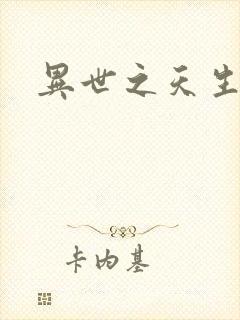 異世之天生
卡内基